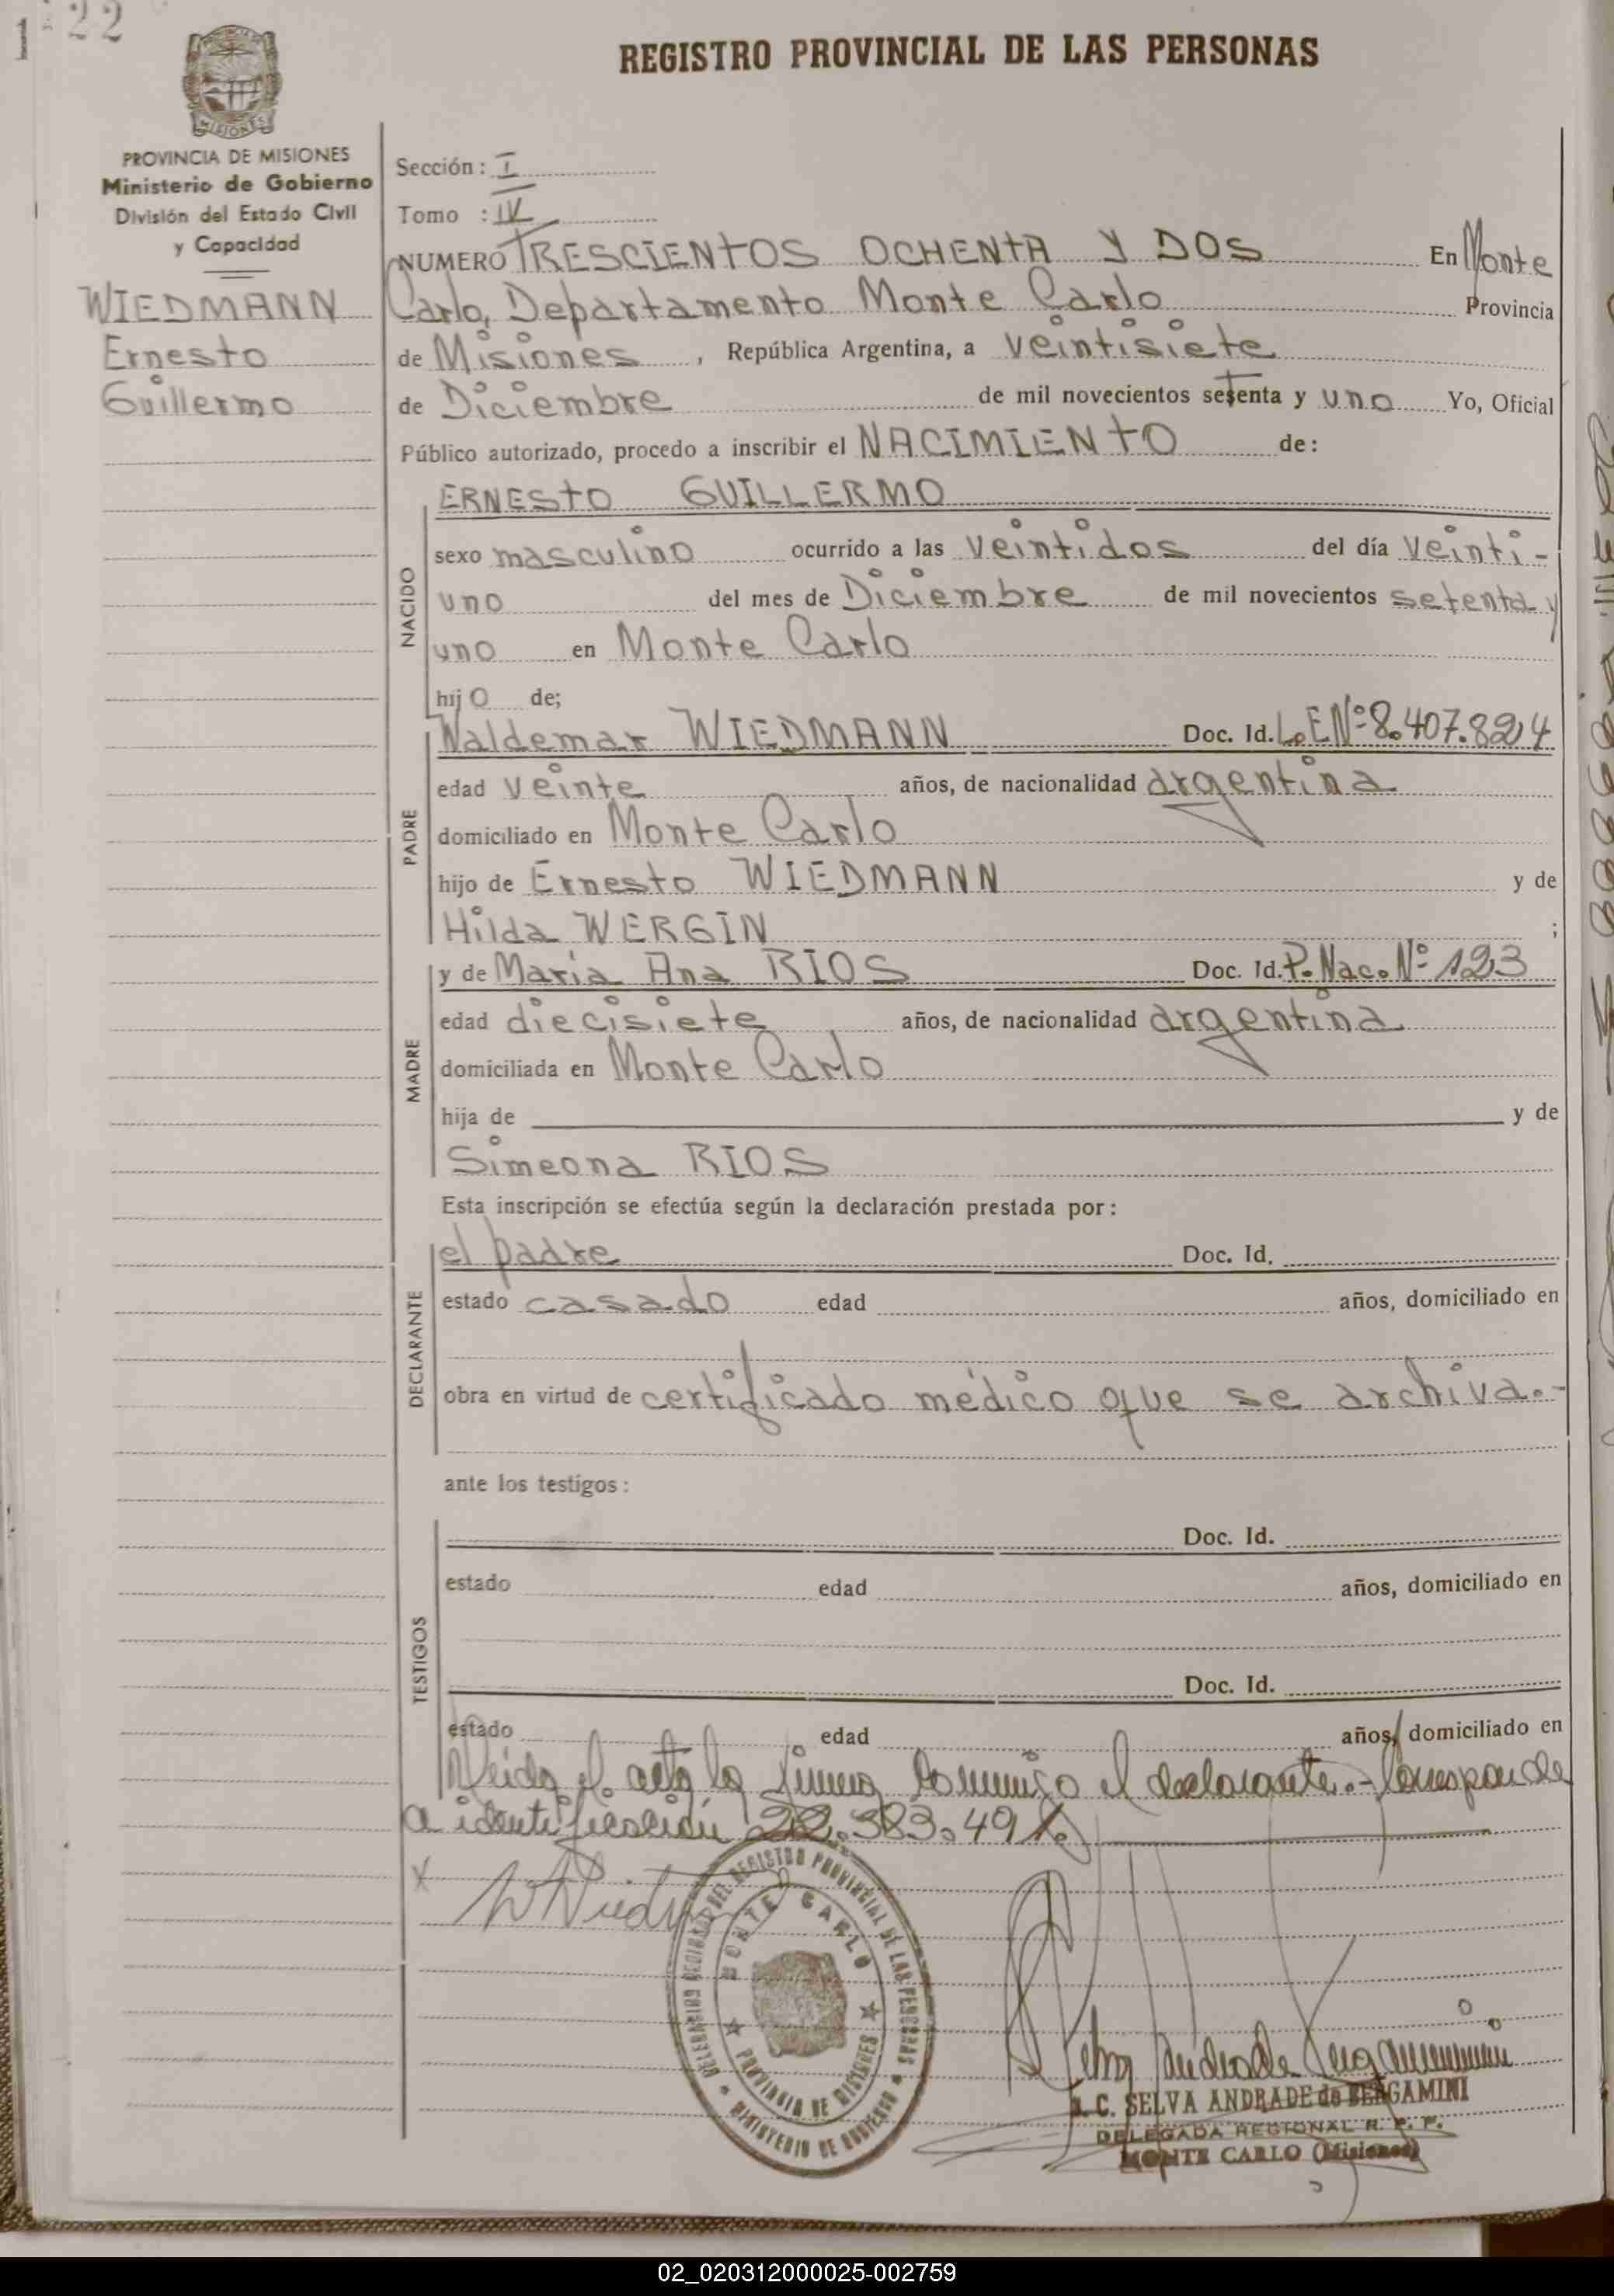 22
REGISTRO PROVINCIAL DE LAS PERSONAS
MISIONES
PROVINCIA DE MISIONES
Ministerio de Gobierno
División del Estado Civil
y Capacidad
WIEDMANN
Ernesto
Guillermo
Sección: I
Tomo : IV
NUMERO TRESCIENTOS OCHENTA Y DOS En Monte
Carlo, Departamento Monte Carlo Provincia
de Misiones, República Argentina, a veintisiete
de Diciembre de mil novecientos setenta y uno Yo, Oficial
Público autorizado, procedo a inscribir el NACIMIENTO de:
NACIDO
ERNESTO GUILLERMO
sexo masculino ocurrido a las veintidos del día veinti-
uno del mes de Diciembre de mil novecientos setenta y
uno en Monte Carlo
hijo de;
PADRE
Waldemar WIEDMANN Doc. Id. L.E Nº 8.407.824
edad veinte años, de nacionalidad argentina
domiciliado en Monte Carlo
hijo de Ernesto WIEDMANN y de
Hilda WERGIN ;
MADRE
y de Maria Ana RIOS Doc. Id. P. Nac. Nº 123
edad diecisiete años, de nacionalidad argentina
domiciliada en Monte Carlo
hija de y de
Simeona RIOS
Esta inscripción se efectúa según la declaración prestada por:
DECLARANTE
el padre Doc. Id.
estado casado edad años, domiciliado en
obra en virtud de certificado médico que se archiva.-
ante los testigos:
TESTIGOS
Doc. Id.
estado edad años, domiciliado en
Doc. Id.
estado edad años, domiciliado en
Leida el acta la firma conmigo el declarante.- Corresponde
a identificación 22.383.491.
X
DEL REGISTRO PROVINCIAL DE LAS PERSONAS
MONTE CARLO
PROVINCIA DE MISIONES
MINISTERIO DE GOBIERNO
C. SELVA ANDRADE de BERGAMINI
DELEGADA REGIONAL R. P. P.
MONTE CARLO (Misiones)
02_020312000025-002759